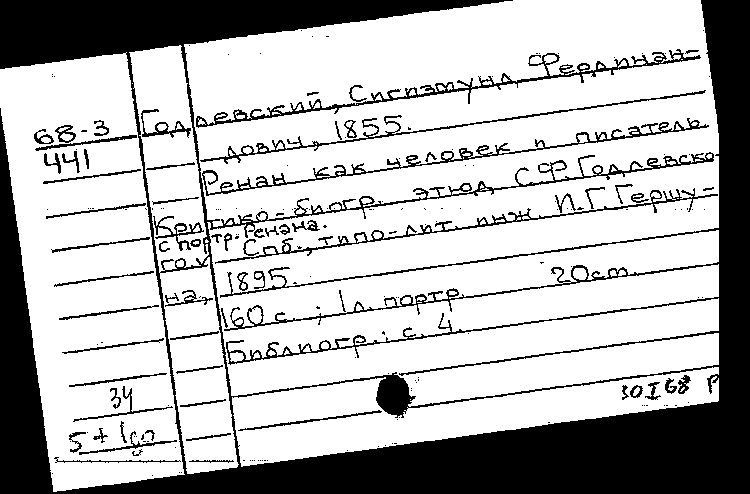 68-3
441
Годлевский, Сигизмунд Фердинан=
дович, 1855.
Ренан как человек и писатель.
Критико-биогр. этюд С.Ф. Годлевско-
с портр. Ренана.
го. Спб., типо-лит. инж. И.Г. Гершу=
на, 1895.
160 с. ; 1 л. портр. 20 cm.
Библиогр.: с. 4.
34
30 I 68 Р